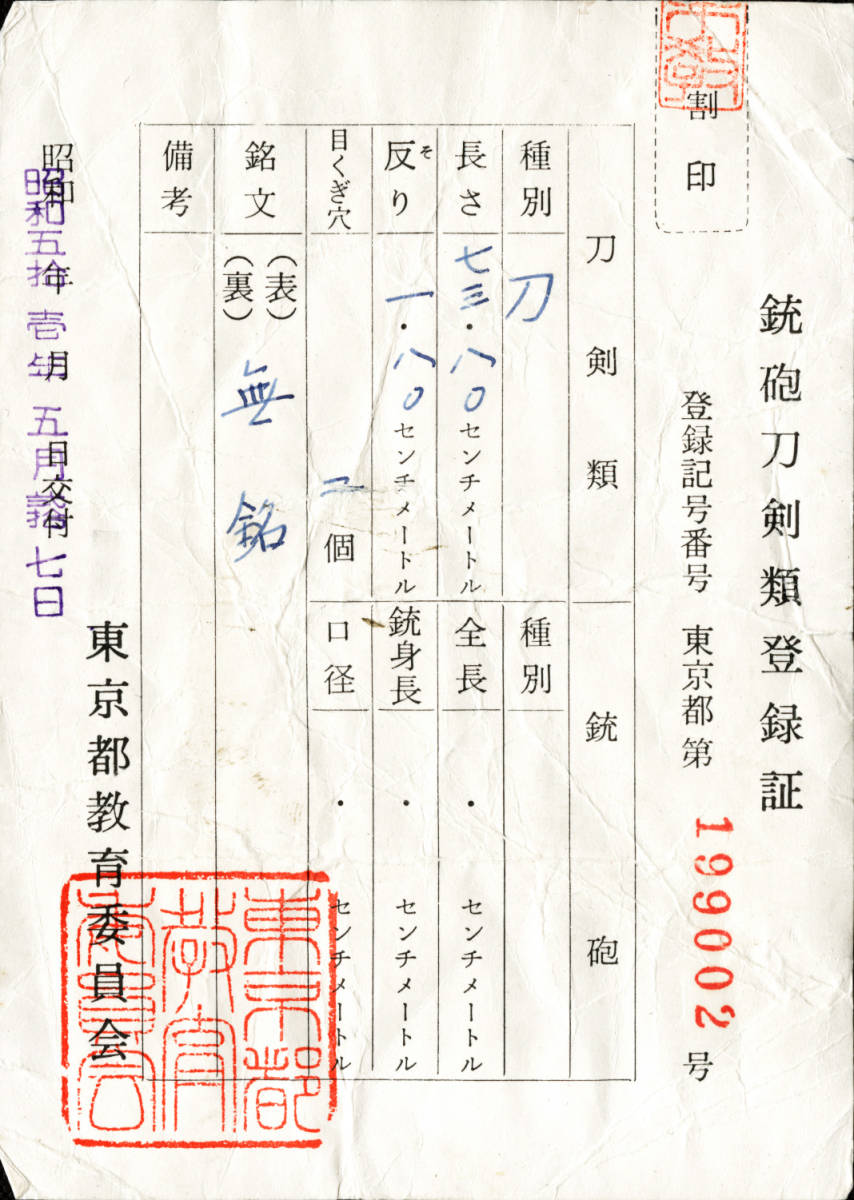 割印
銃砲刀剣類登録証
登録記号番号 東京都第 199002 号
刀剣類
銃砲
種別
刀
種別
長さ
七三・八〇センチメートル
全長
・センチメートル
反り
そ
一・八〇センチメートル
銃身長
・センチメートル
目くぎ穴
二個
口径
・センチメートル
銘文
(表)
(裏)
無銘
備考
昭和 年 月 日交付
昭和五拾壱年五月拾七日
東京都教育委員会
東京都
教育
委員会